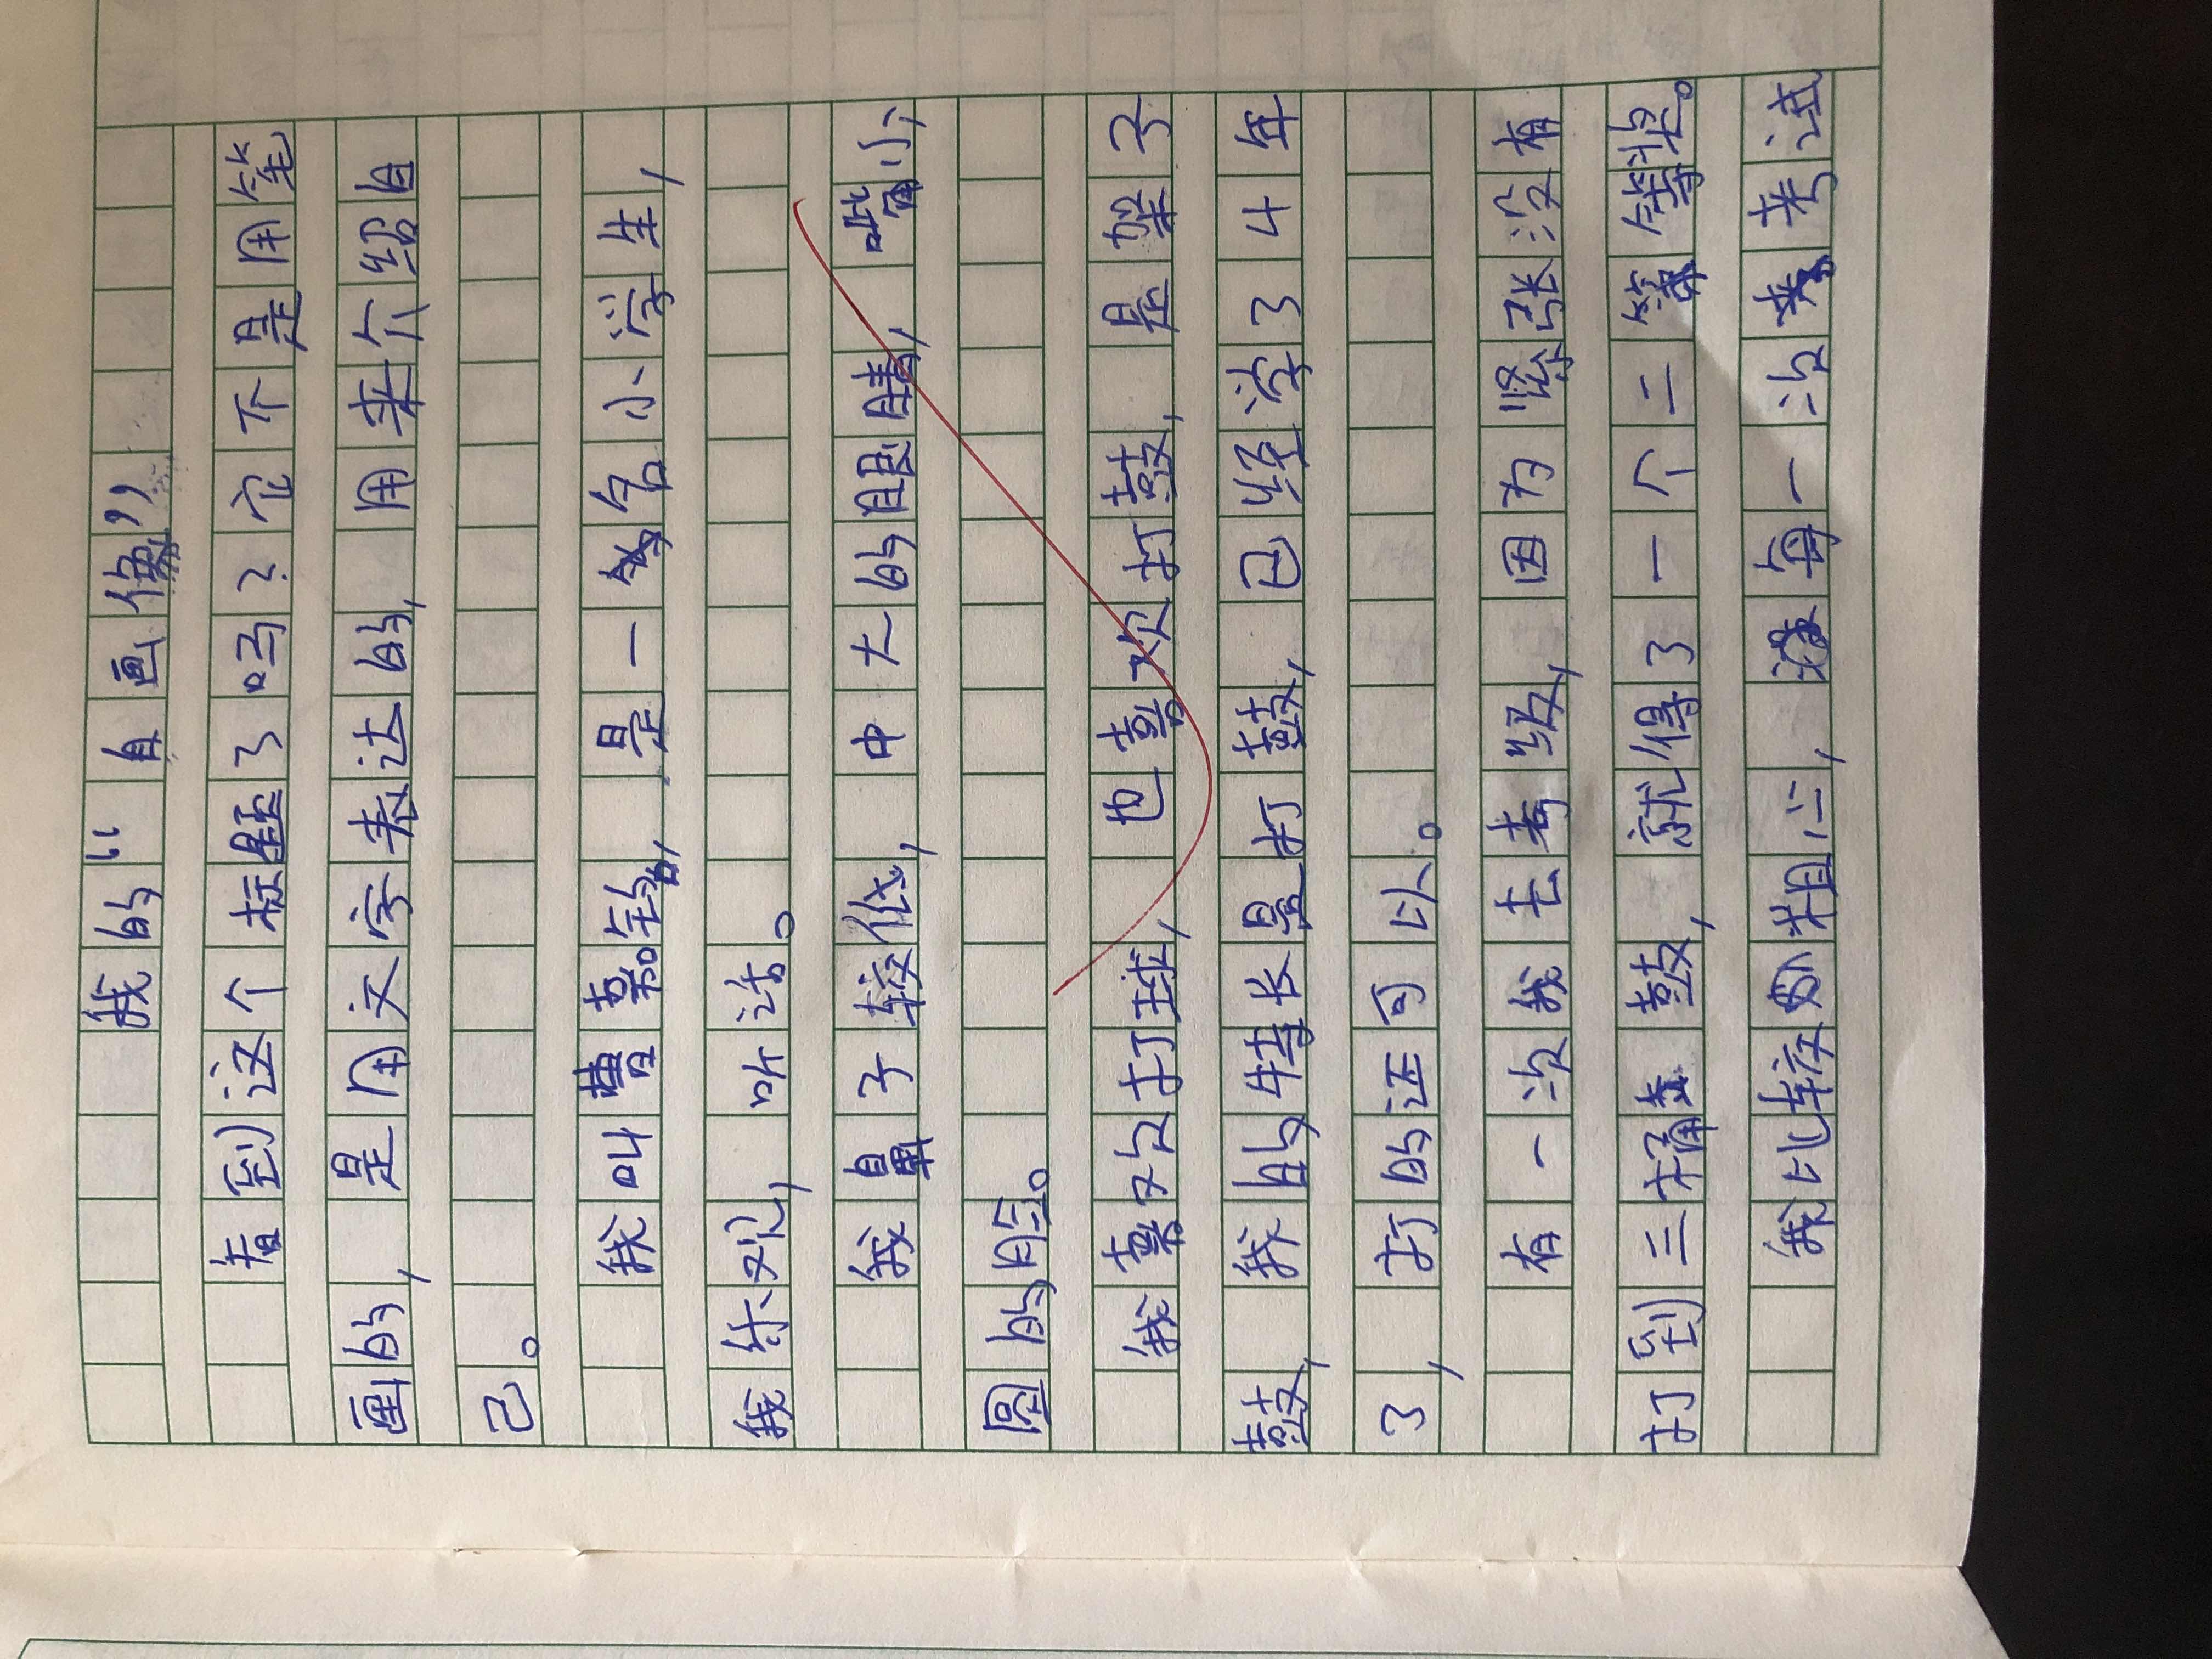 我的“自画像”
看到这个标题了吗？它不是用笔
画的，是用文字表达的，用来介绍自
己。
我叫曹熹铭，是一名小学生，
我外冗，幻活。
我鼻子较低，中大的眼睛，嘴小，
圆的脸。
我喜欢打球，也喜欢打鼓，是架子
鼓，我的特长是打鼓，已经学了4年
了，打的还可以。
有一次我去考级，因为紧张没有
打到三桶鼓，就得了一个二等奖。
我比较粗心，每一次考试